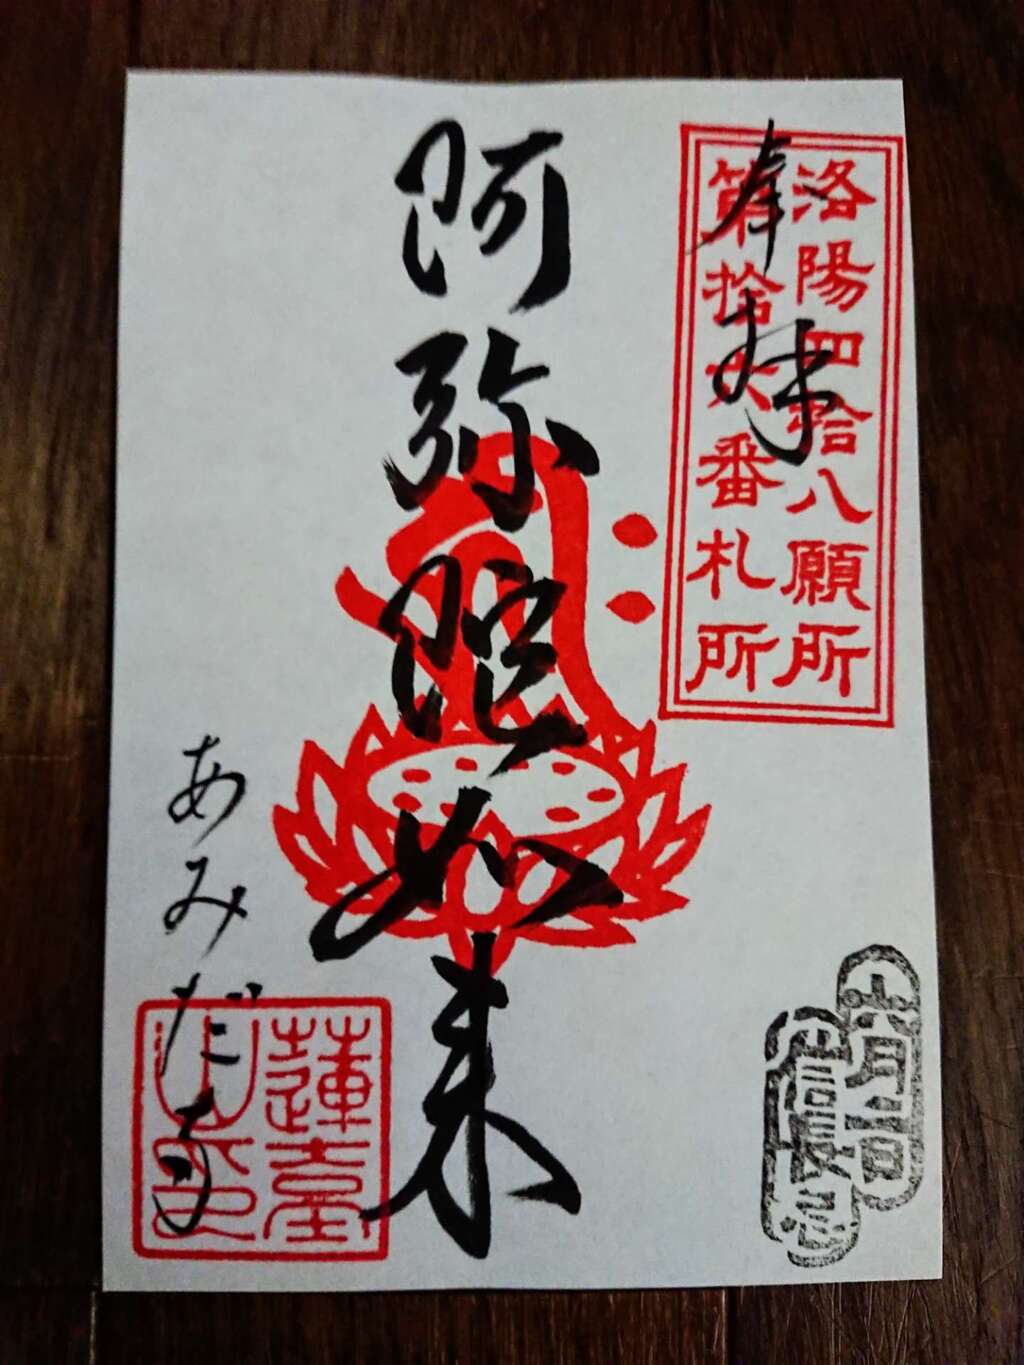 奉拝
洛陽四拾八願所
第拾六番札所
阿弥陀如来
あみだ寺
蓮臺
山印
六月二日
信長忌